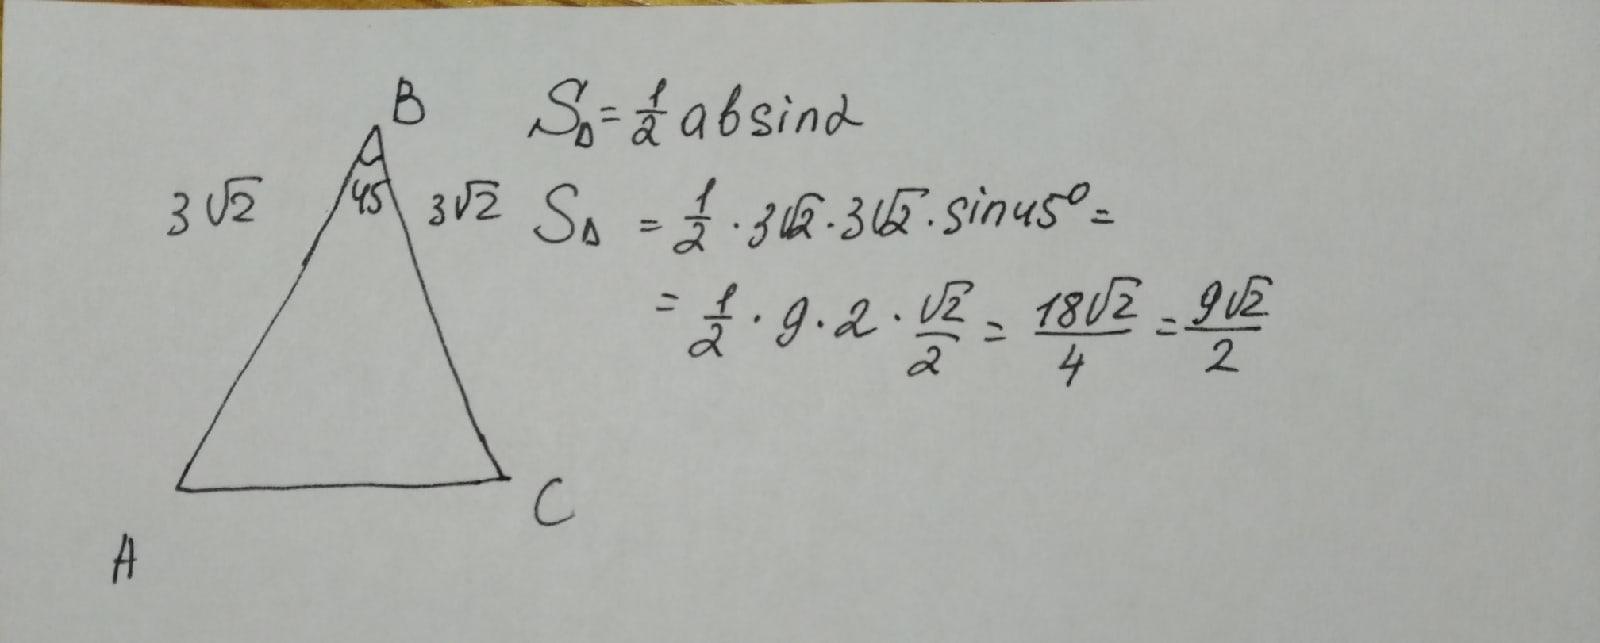 B
S△ = 1/2 ab sin α
3√2
45
3√2
S△ = 1/2 · 3√2 · 3√2 · sin 45° =
= 1/2 · 9 · 2 · √2/2 = 18√2/4 = 9√2/2
C
A